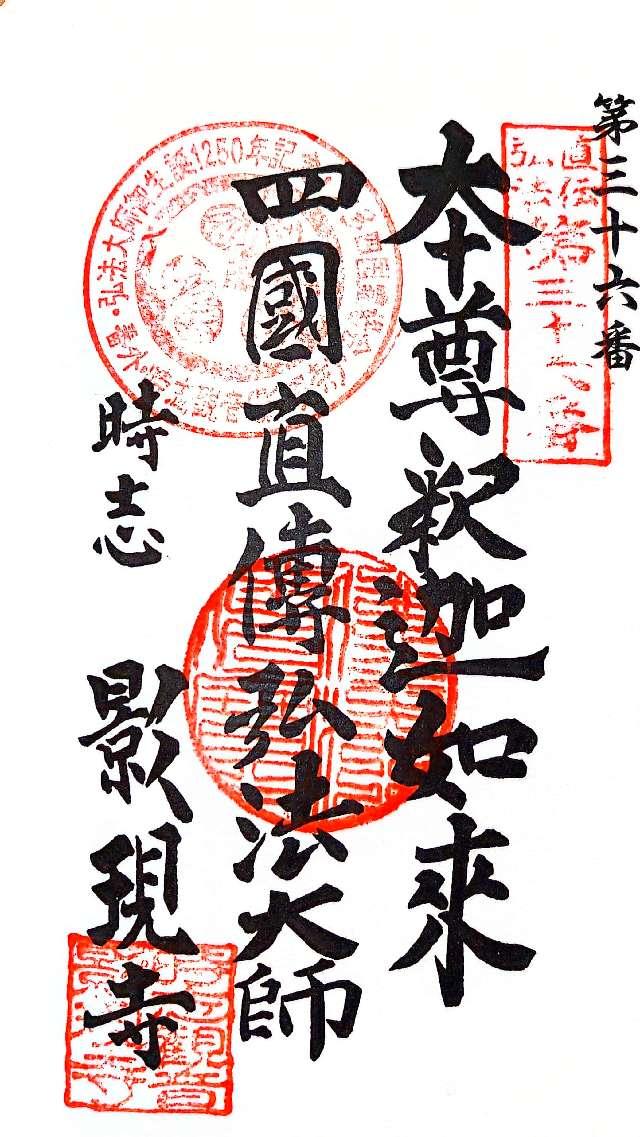 第三十六番
直伝
弘法
第三十六番
本尊釈迦如来
四國直傳弘法大師
弘法大師御生誕1250年記念
時志 影現寺